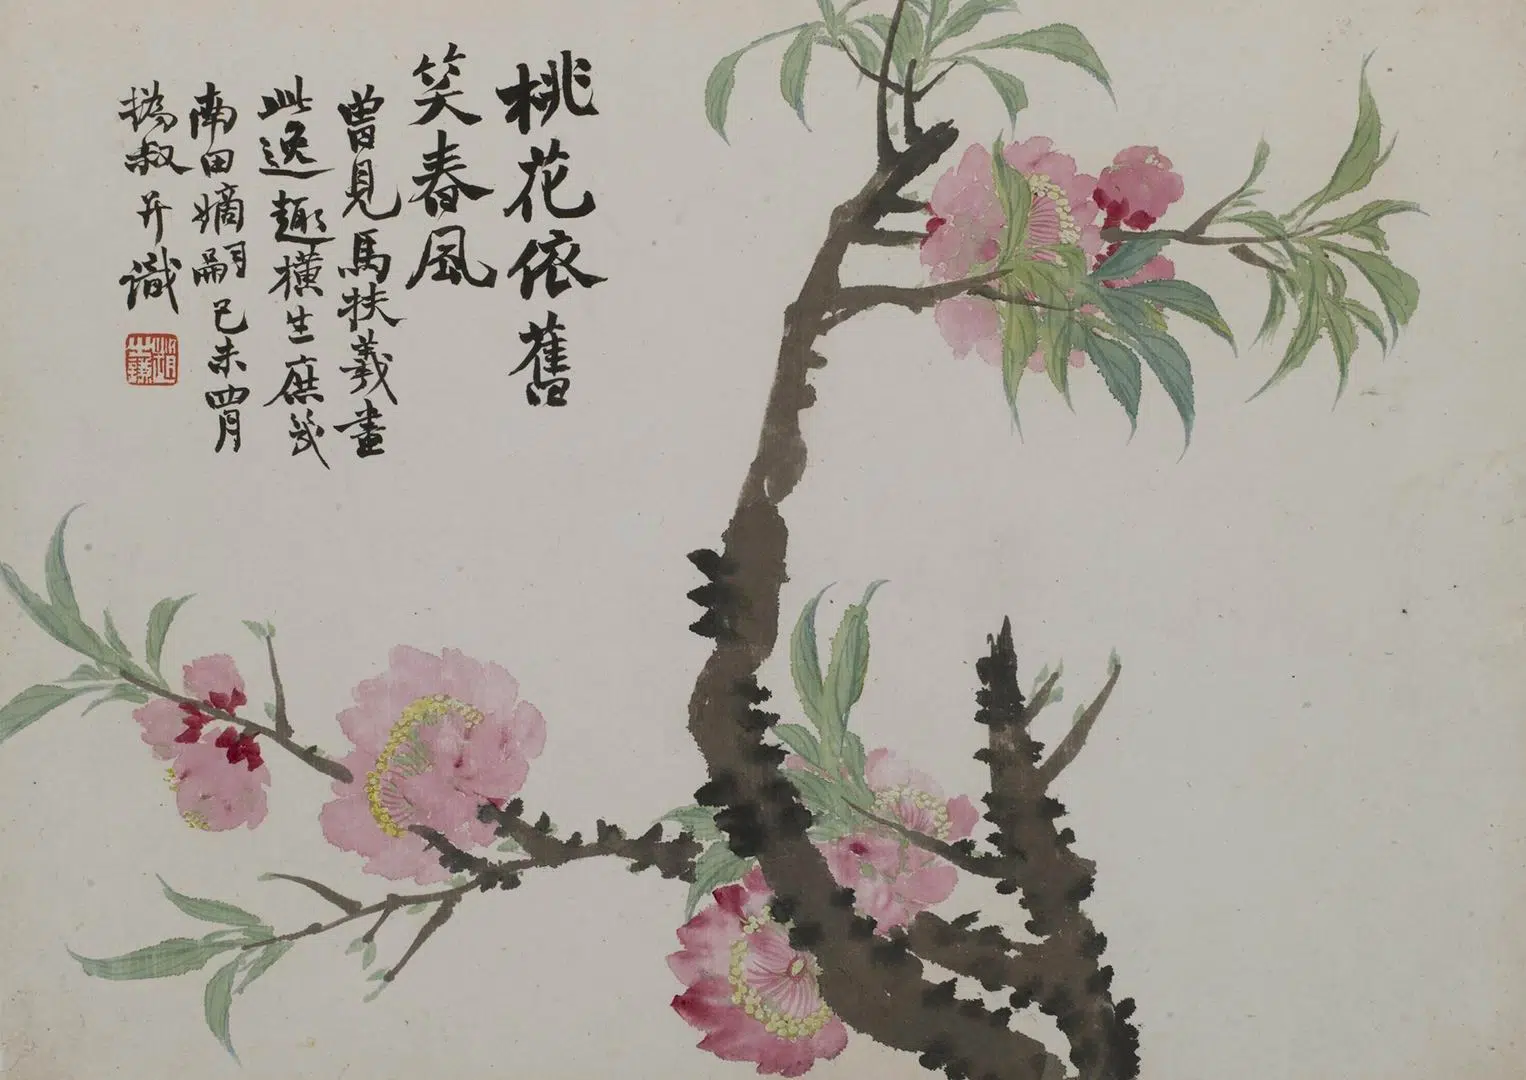 桃花依舊
笑春風
曾見馬扶羲畫
此逸趣橫生庶幾
南田嫡嗣己未四月
撝叔并識
趙之謙